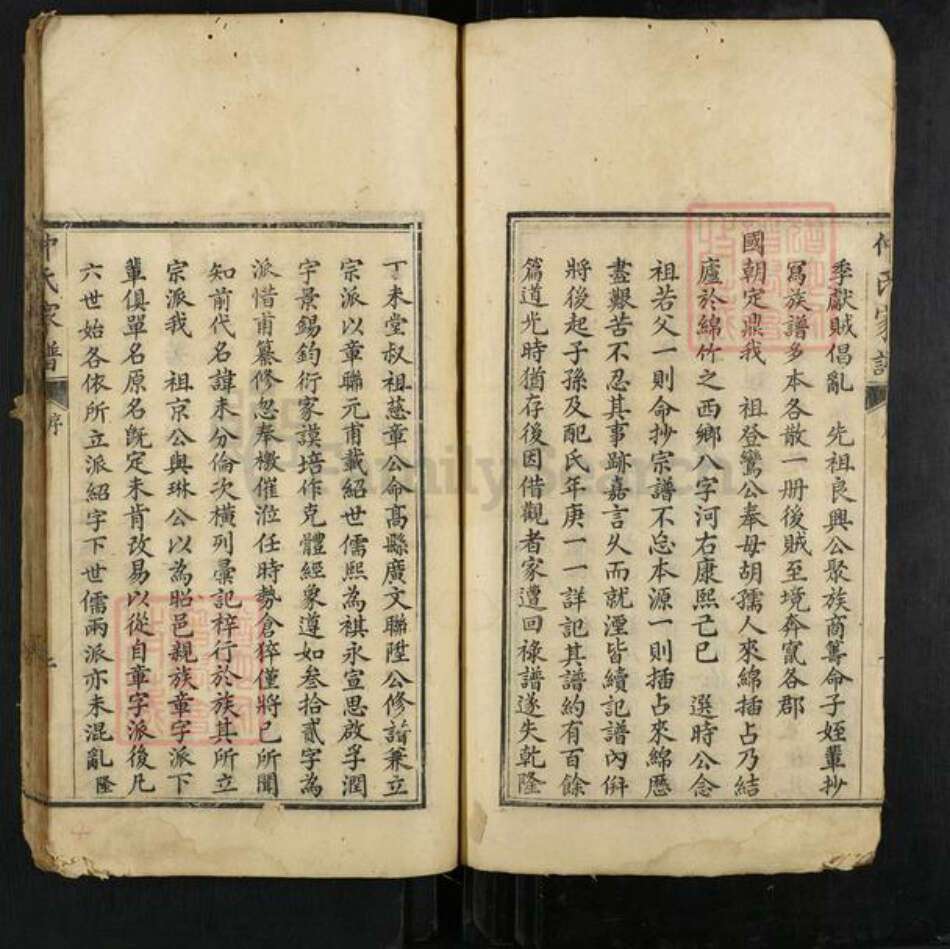 季獻賊倡亂　先祖良興公聚族商籌命子姪輩抄
寫族譜多本各散一册後賊至境奔竄各郡
國朝定鼎我　祖登鸞公奉母胡孺人來綿插占乃結
廬於綿竹之西鄉八字河右康熙己巳　選時公念
祖若父一則命抄宗譜不忘本源一則插占來綿歷
盡艱苦不忍其事跡嘉言久而就湮皆續記譜內併
將後起子孫及配氏年庚一一詳記其譜約有百餘
篇道光時猶存後因借觀者家遭回祿譜遂失乾隆
丁未堂叔祖慈章公命高縣廣文聯陞公修譜兼立
宗派以章聯元甫載紹世儒熙為祺永宣思啟孚潤
字景錫鈞衍家謨培作克體經象遵如叁拾貳字為
派惜甫纂修忽奉檄催涖任時勢倉猝僅將己所聞
知前代名諱未分倫次橫列彙記梓行於族其所立
宗派我　祖京公與琳公以為昭邑親族章字派下
輩俱單名原名既定未肯改易以從自章字派後凡
六世始各依所立派紹字下世儒兩派亦未混亂隆
仲氏家譜
序
FamilySearch